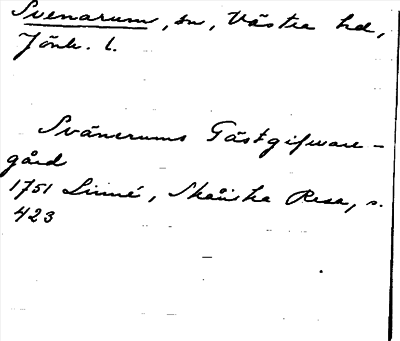 Svenarum, sn, Västra hd,
Jönk. l.
Svänerums Gästgifware-
gård
1751 Linné, Skånska Resa, s.
423